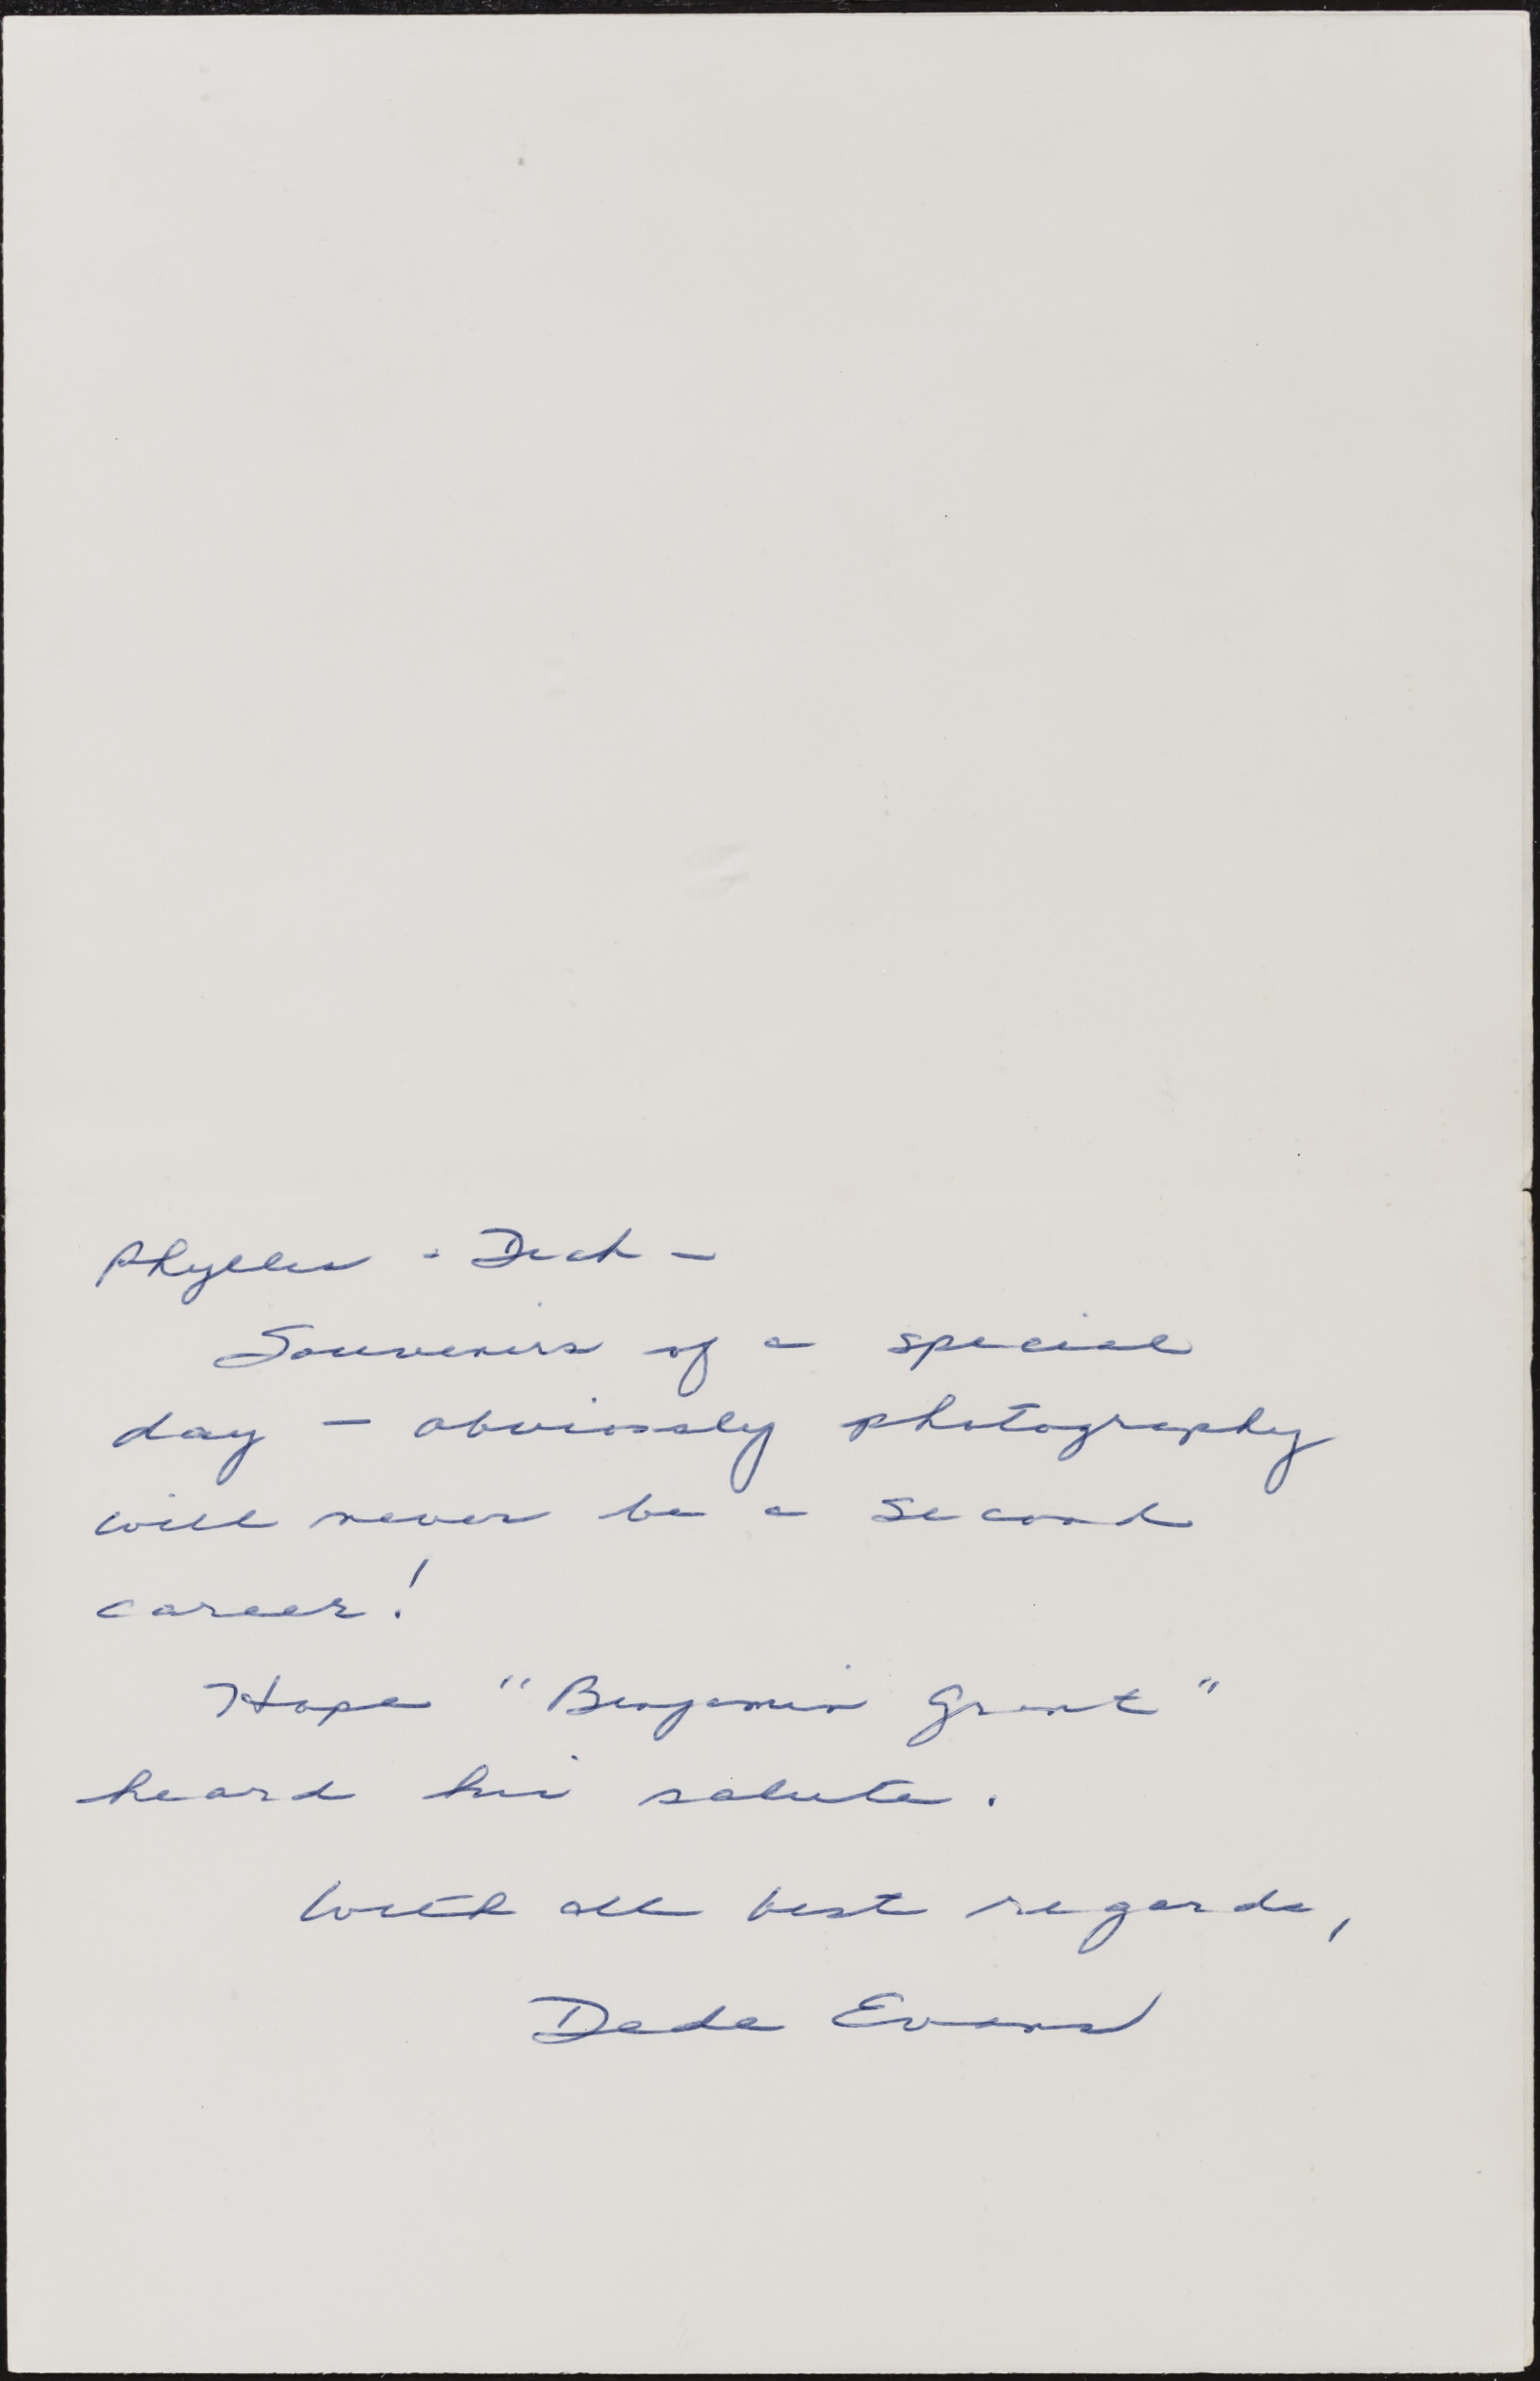 Phyllis - Dick -
Souvenirs of a special
day - obviously photography
will never be a second
career!
Hope "Benjamin Grant"
heard his salute.
With all best regards,
Dede Evans